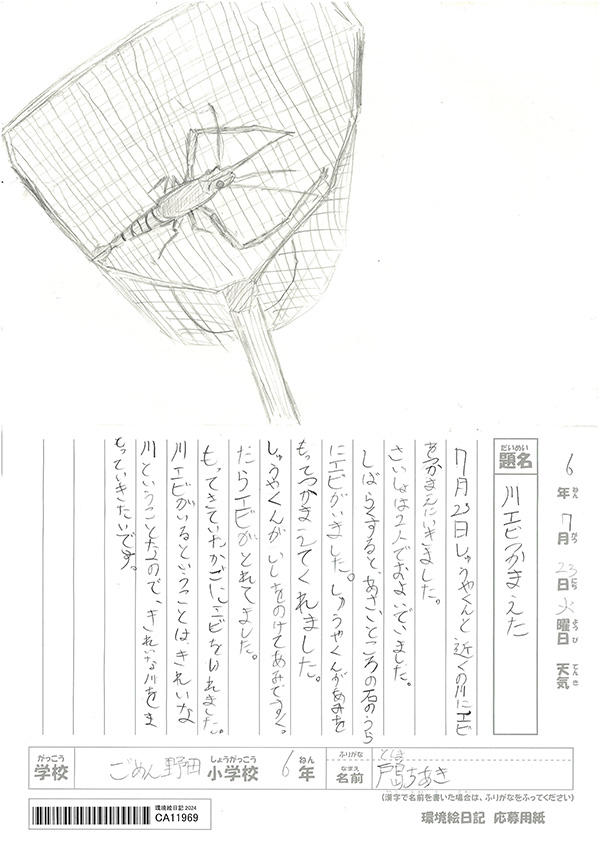 6年ねん7月がつ23日にち火曜日ようび天気てんき
題名だいめい
川エビつかまえた
7月23日しゅうやくんと近くの川にエビ
をつかまえにいきました。
さいしょは2人でおよいでいました。
しばらくすると、あさいところの石のうら
にエビがいました。しゅうやくんがあみを
もってつかまえてくれました。
しゅうやくんがいしをのけてあみですく。
たらエビがとれてました。
もってきていたかごにエビをいれました。
川エビがいるということはきれいな
川ということなので、きれいな川をま
もっていきたいです。
がっこう学校 ごめん野田 しょうがっこう小学校 6 ねん年 ふりがな としま
なまえ名前 戸島ちあき
(漢字で名前を書いた場合は、ふりがなをふってください)
環境絵日記 2024
CA11969
環境絵日記 応募用紙